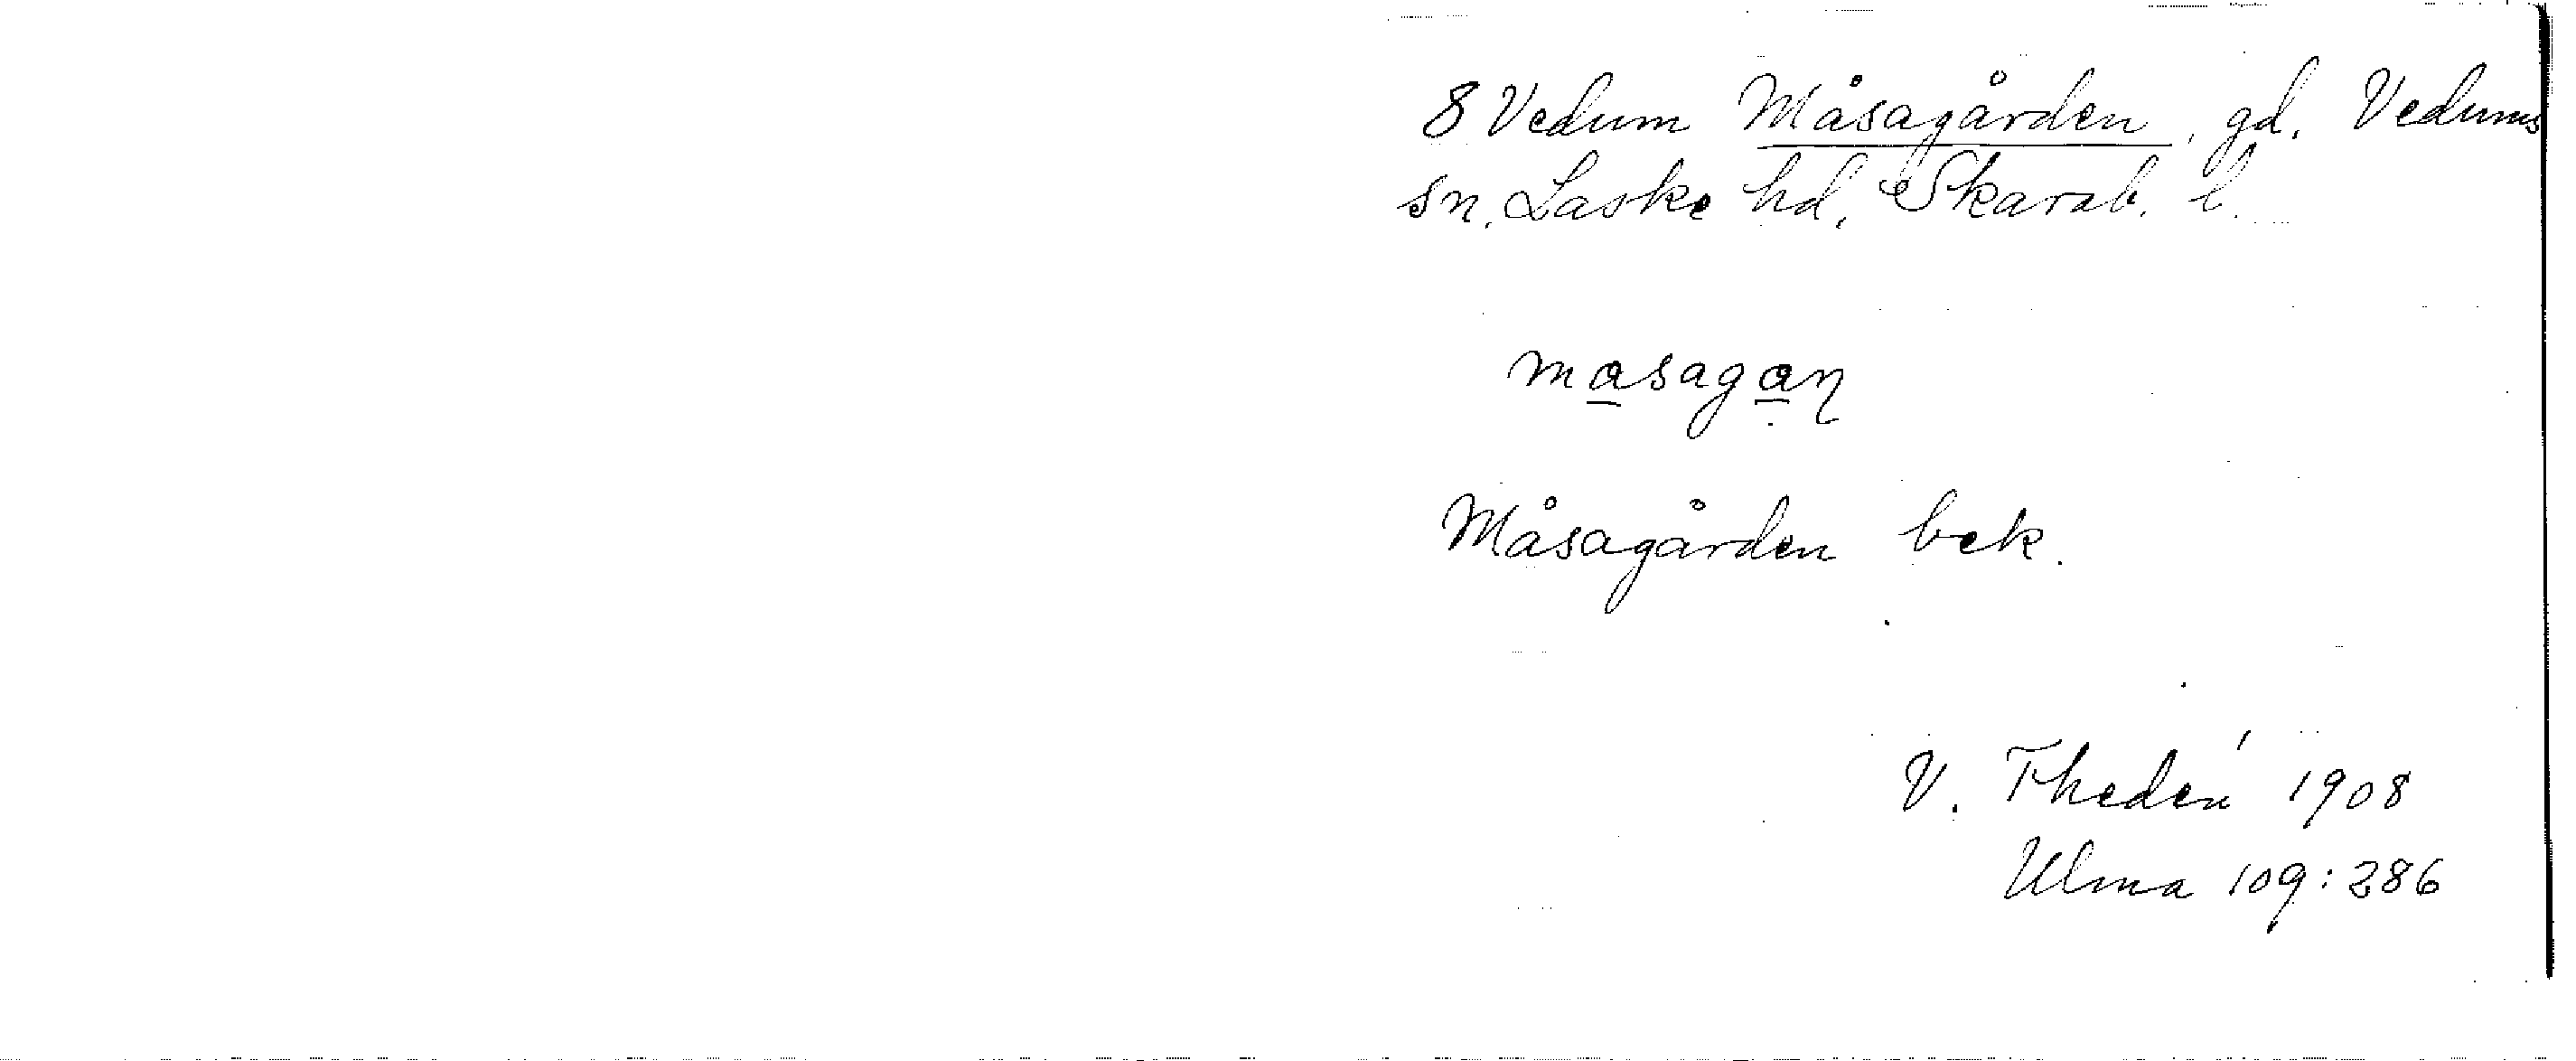 8 Vedum Måsagården, gd. Vedums
sn. Laske hd, Skarab. l.
masagaɳ
Måsagården bek.
V. Thedén 1908
Ulma 109:286